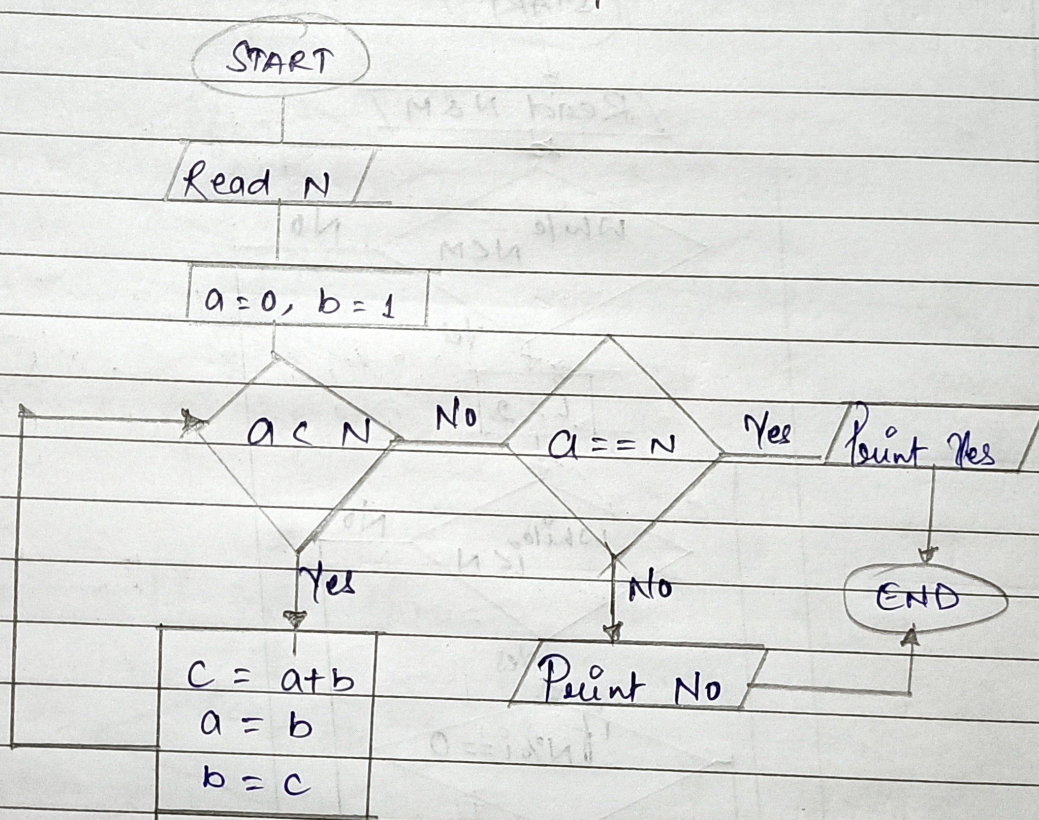 START
Read N
a=0, b=1
a < N
No
a == N
Yes
Print Yes
Yes
No
END
c = a+b
a = b
b = c
Print No